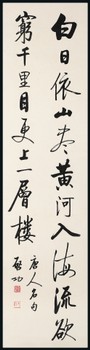 白日依山尽黄河入海流欲
窮千里目更上一層楼
唐人名句
啓功